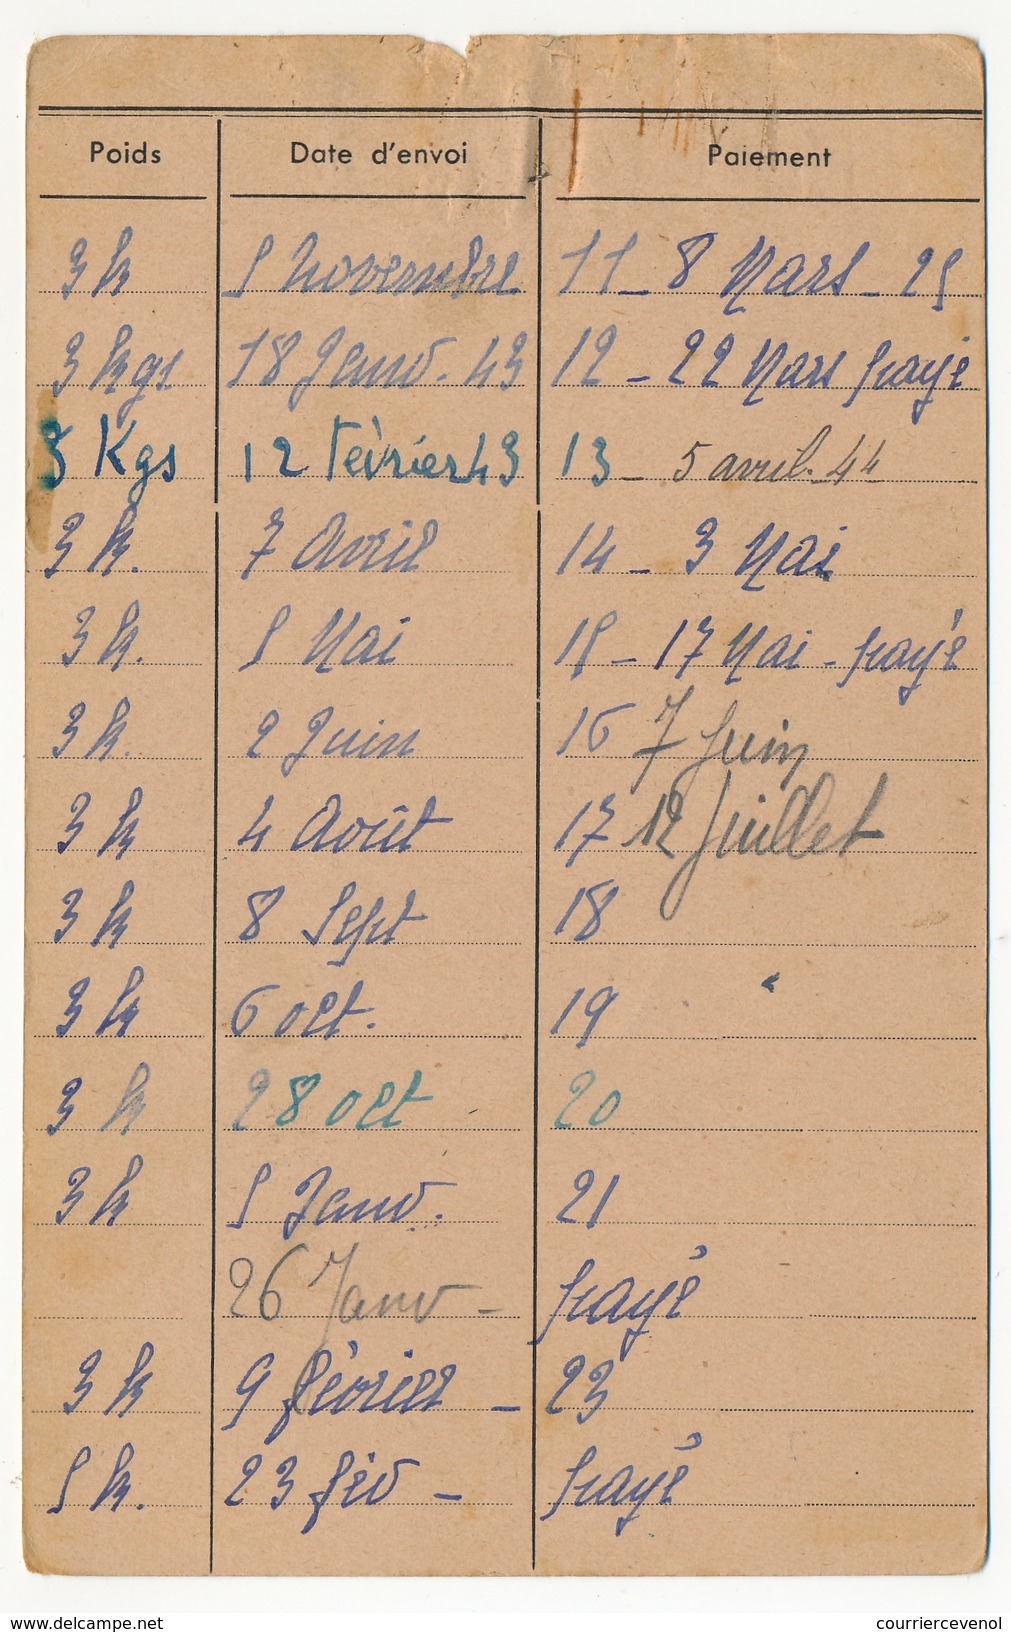 Poids Date d'envoi Paiement
3 k 5 Novembre 11 - 8 Mars - 25
3 kgs 18 Janv. 43 12 - 22 Mars payé
3 Kgs 12 Février 43 13 - 5 avril. 44
3 k. 7 Avril 14 - 3 Mai
3 k. 5 Mai 15 - 17 Mai - payé
3 k. 2 Juin 16 7 Juin
3 k 4 Août 17 12 Juillet
3 k 8 Sept 18
3 k 6 oct. 19
3 k 28 oct 20
3 k 5 Janv. 21
26 Janv - payé
3 k 9 février - 23
5 k. 23 fév - payé
delcampe.net courriercevenol